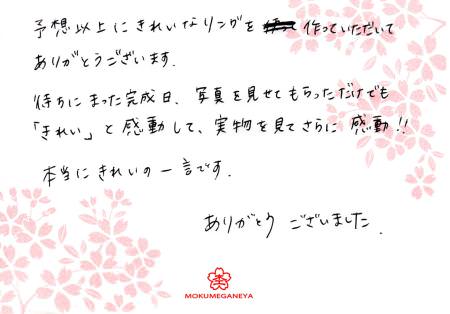 予想以上にきれいなリングを 作っていただいて
ありがとうございます.
待ちにまった完成日、写真を見せてもらっただけでも
「きれい」と感動して、実物を見てさらに感動!!
本当にきれいの一言です.
ありがとう ございました.
MOKUMEGANEYA